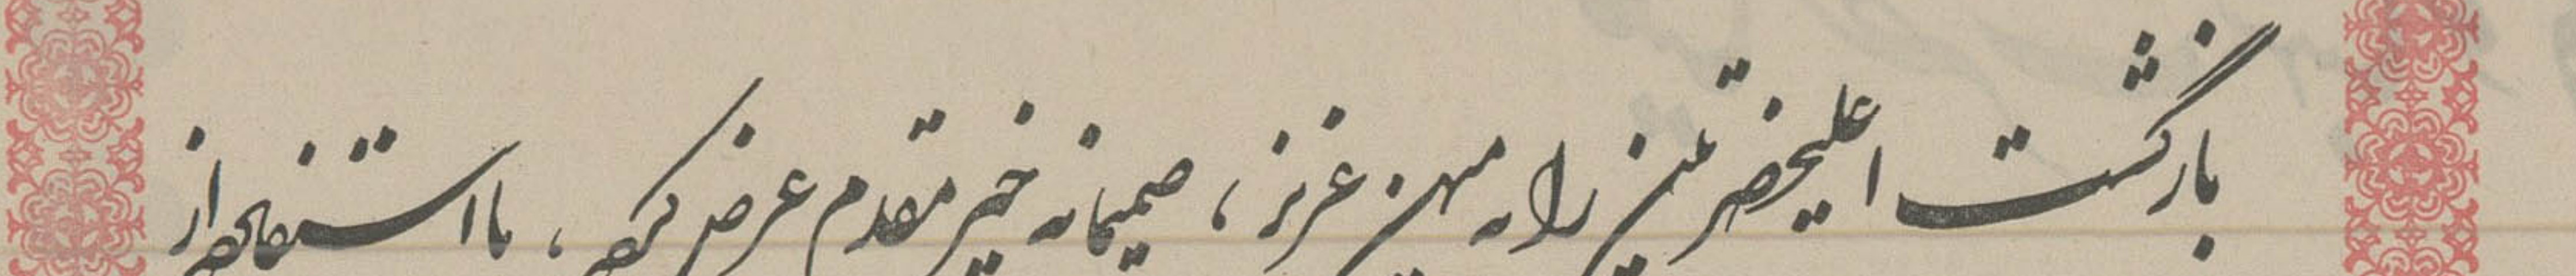 بازگشت اعلیحضرتین را به میهن عزیز، صمیمانه خیر مقدم عرض کرده، با استفاده از